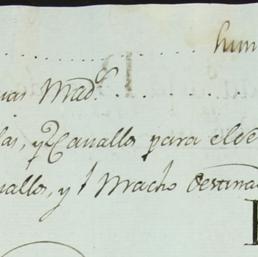 hum
uas Mad.^s
las, y 2 Cavallos para el de
vallos, y 1 Macho destina